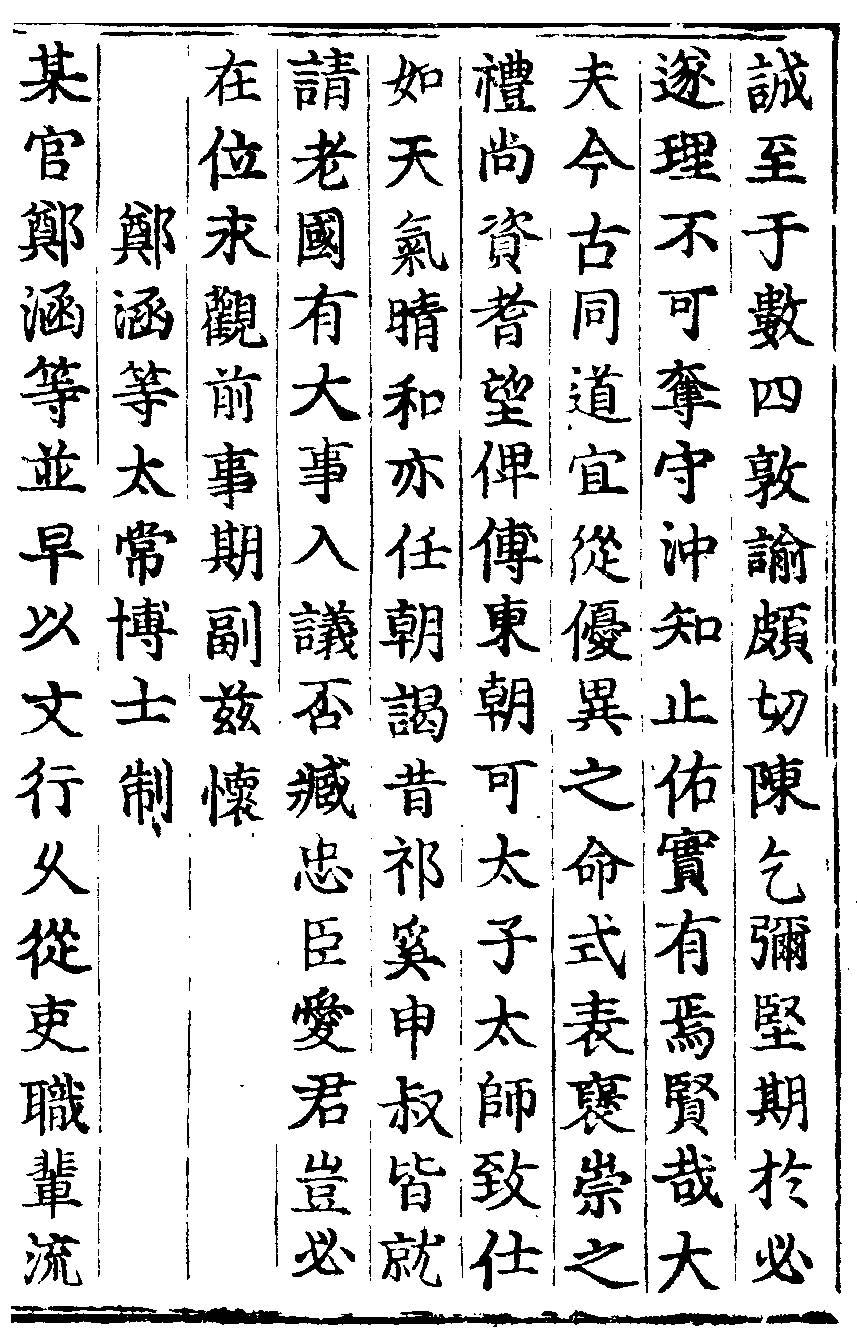 誠至于數四敦諭頗切陳乞彌堅期於必
遂理不可奪守沖知止佑實有焉賢哉大
夫今古同道宜從優異之命式表襃崇之
禮尚資耆望俾傅東朝可太子太師致仕
如天氣晴和亦任朝謁昔祁奚申叔皆就
請老國有大事入議否臧忠臣愛君豈必
在位永觀前事期副茲懷
鄭涵等太常博士制
某官鄭涵等並早以文行久從吏職輩流